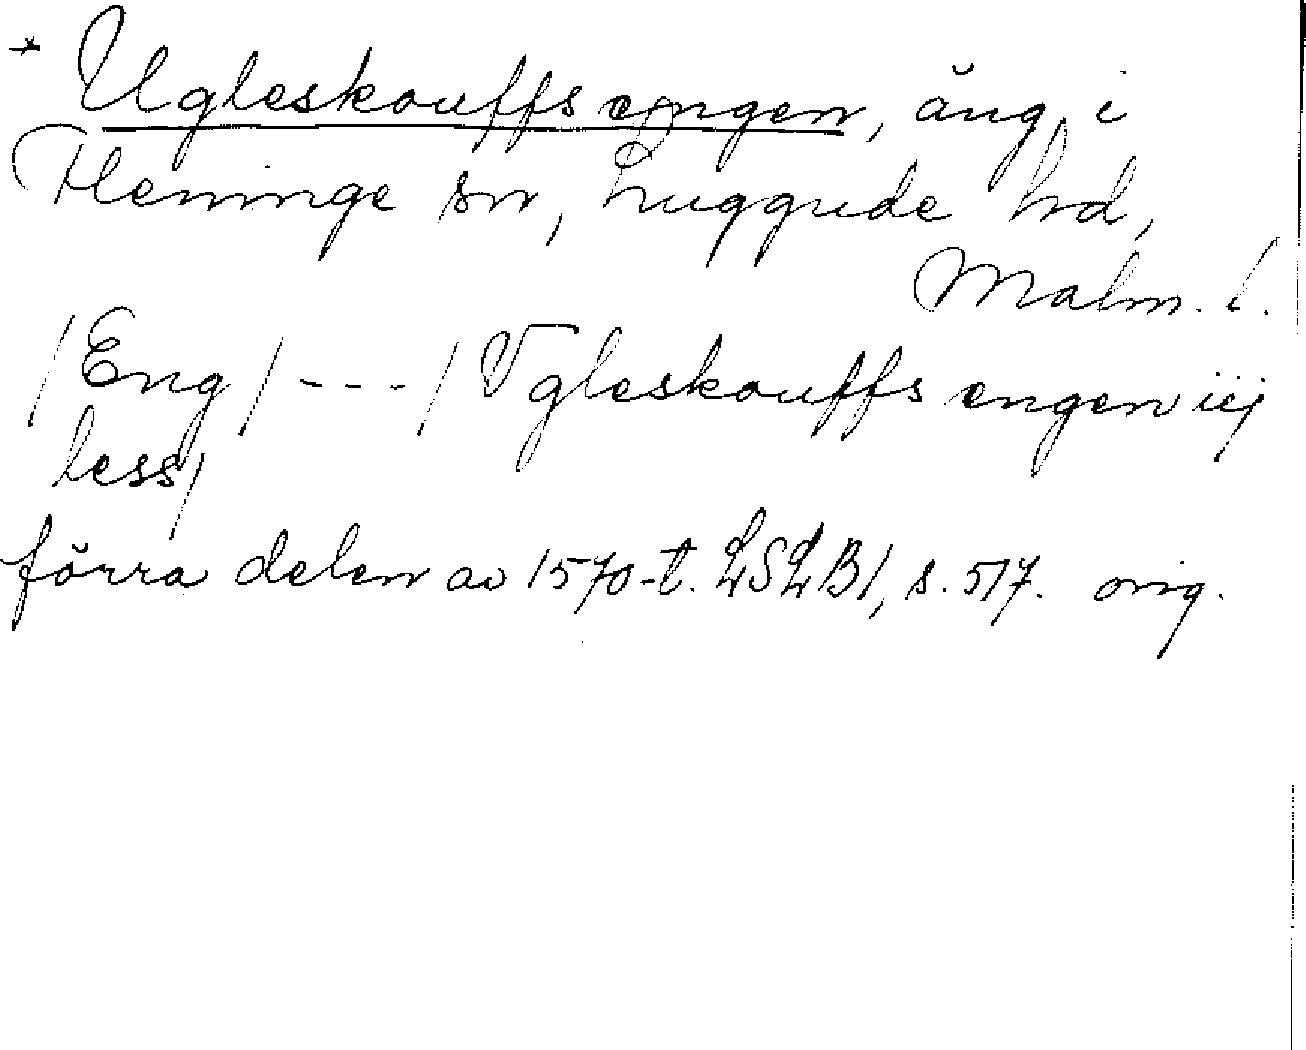 * Ugleskouffs engen, äng i
Fleninge sn, Luggude hd,
Malm. l.
/Eng/---/Vgleskouffs engen iij
less/
förra delen av 1570-t. LSLB1, s. 517. orig.